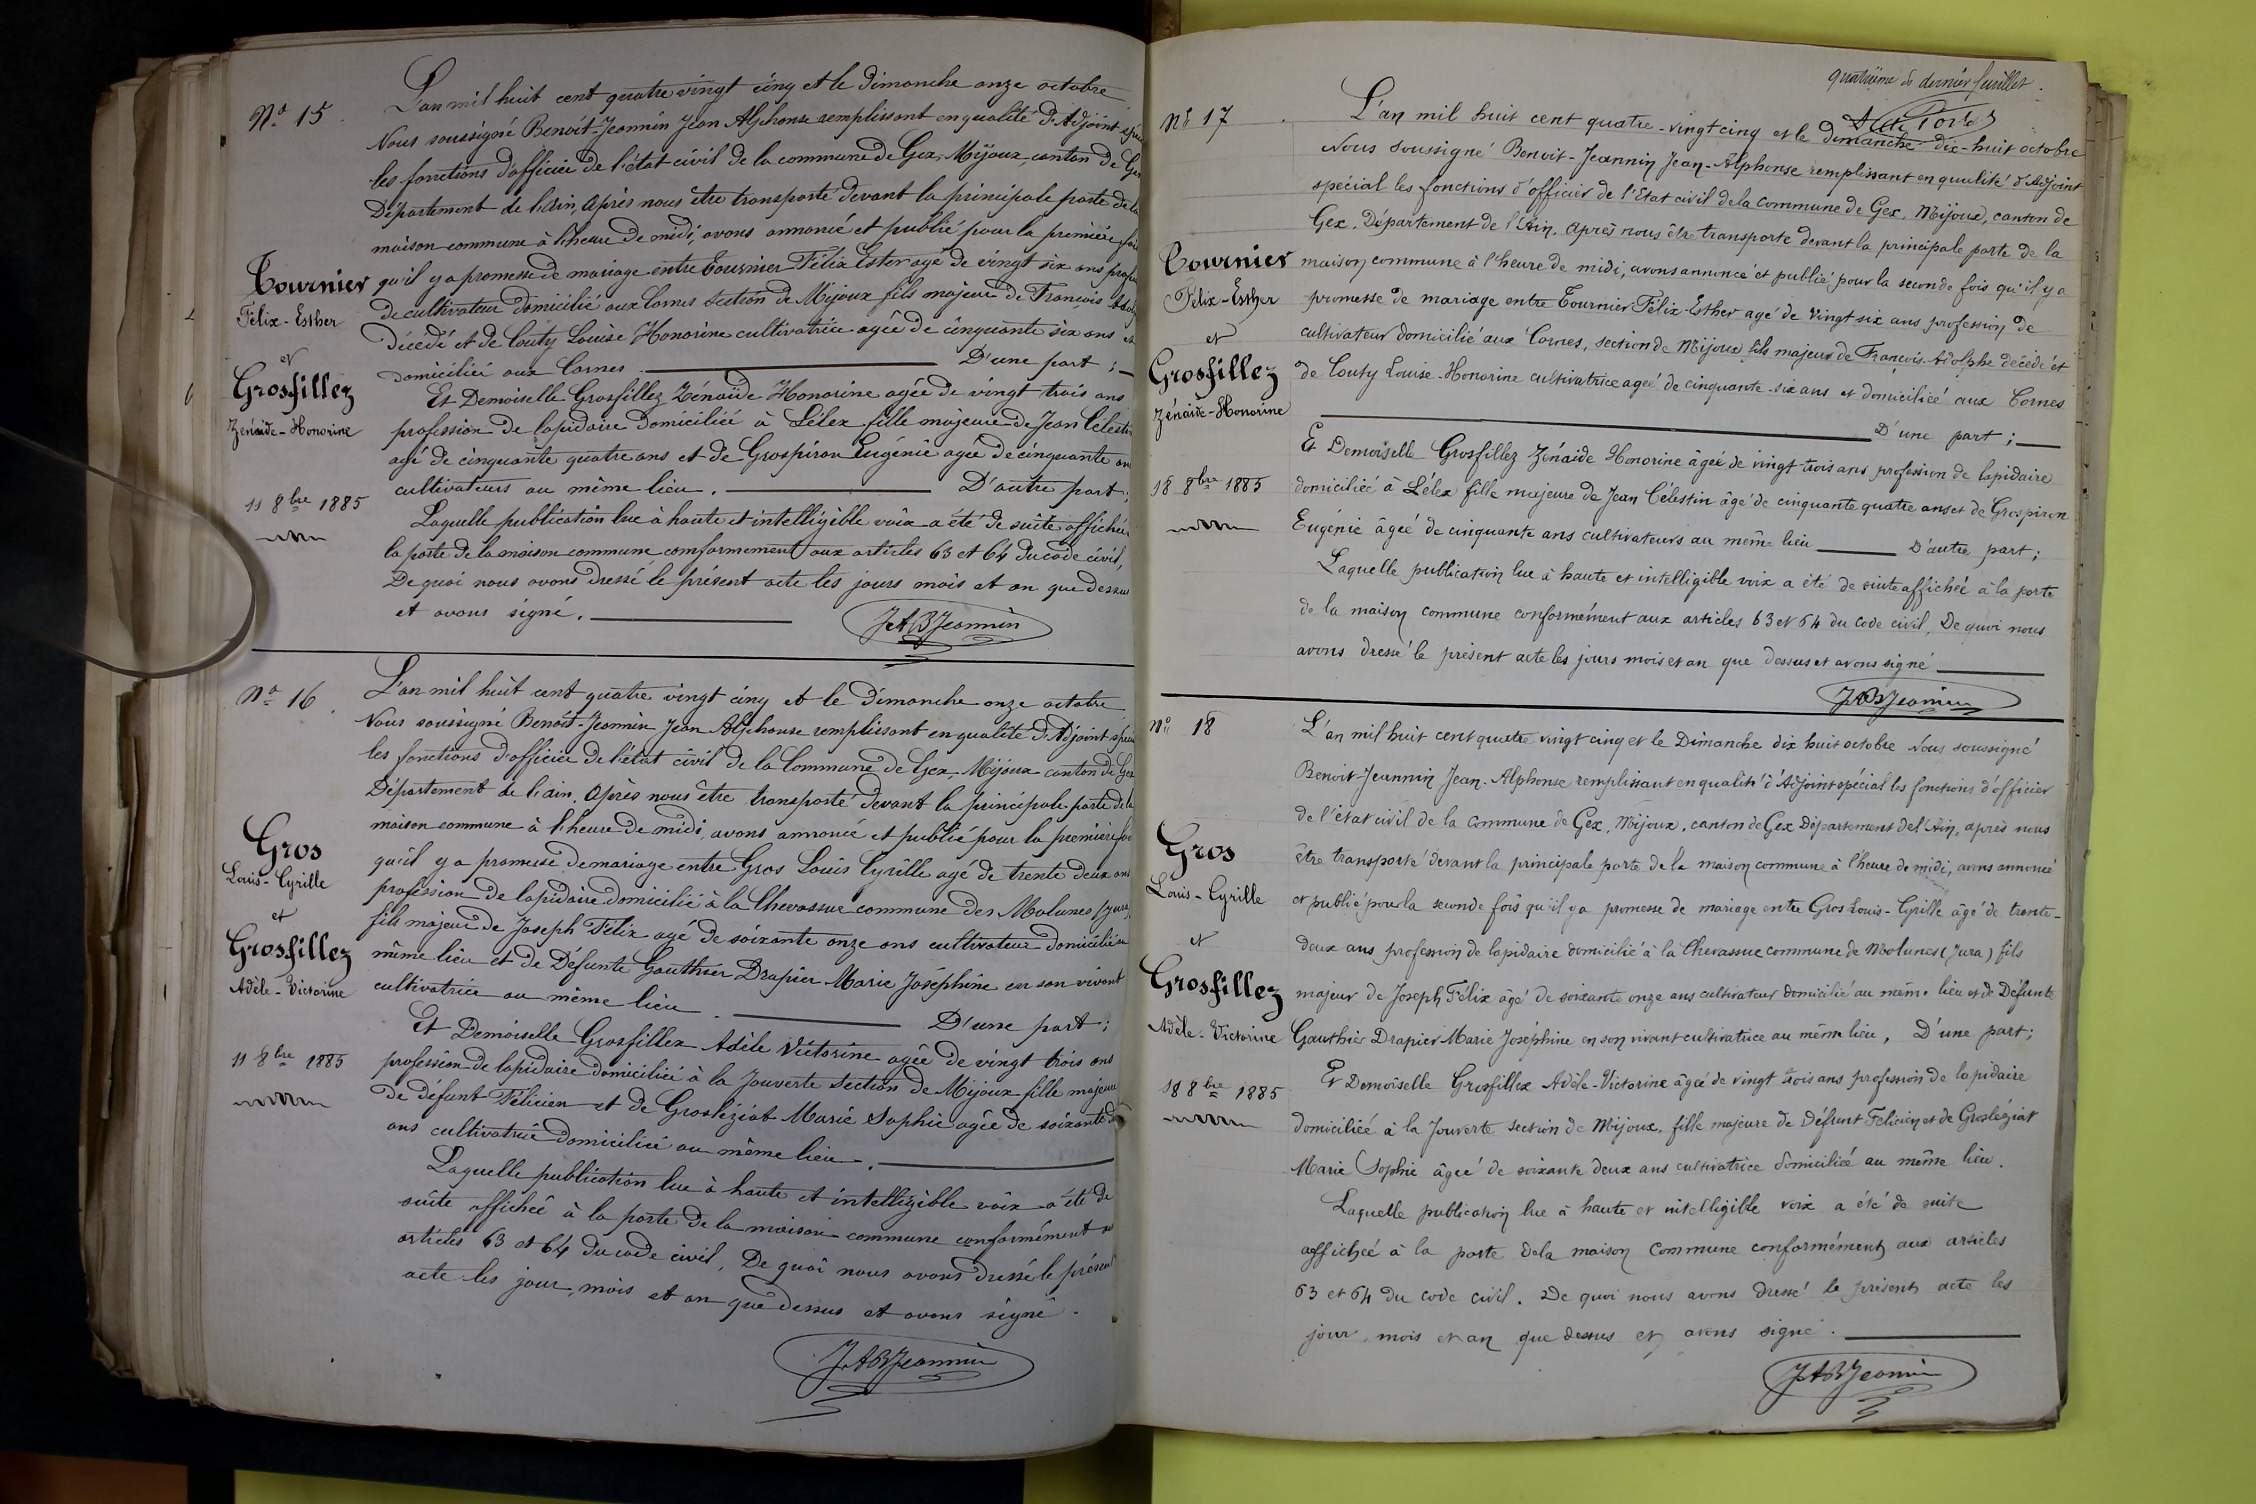 No 15.
L'an mil huit cent quatre vingt cinq et le Dimanche onze octobre
Nous soussigné Benoit-Jeannin Jean Alphonse remplissant en qualité d'Adjoint
les fonctions d'officier de l'état civil de la commune de Gex, Mijoux, canton de Gex
Département de l'ain, Après nous être transporté devant la principale porte de la
maison commune à l'heure de midi, avons annoncé et publié pour la première fois
qu'il y a promesse de mariage entre Tournier Félix Ester agé de vingt six ans
de cultivateur domicilié aux Cornes Section de Mijoux fils majeur de Francois
Décédé et de Couty Louise Honorine cultivatrice agée de cinquante six ans et
domiciliée aux Cornes. D'une part;
Et Demoiselle Grosfillez Zénaïde Honorine agée de vingt trois ans
profession de lapidaire domiciliée à Lélex fille majeure de Jean Célestin
agé de cinquante quatre ans et de Grospiron Eugénie agée de cinquante ans
cultivateurs au même lieu. D'autre part;
Laquelle publication lue à haute et intelligible voix a été de suite affichée
la porte de la maison commune comformement aux articles 63 et 64 du code civil,
De quoi nous avons dressé le présent acte les jours mois et an que dessus
et avons signé.
JABJeannin
Tournier
Félix-Esther
et
Grosfillez
Zénaïde-Honorine
11 8bre 1885
No 16.
L'an mil huit cent quatre vingt cinq et le Dimanche onze octobre
Nous soussigné Benoit-Jeannin Jean Alphonse remplissant en qualité d'Adjoint
les fonctions d'officier de l'état civil de la Commune de Gex, Mijoux canton de Gex
Département de l'ain. Après nous être transporté devant la principale porte de la
maison commune à l'heure de midi, avons annoncé et publié pour la première fois
qu'il y a promesse de mariage entre Gros Louis Cyrille agé de trente deux ans
profession de lapidaire domicilié à la Chevassue commune des Molunes (Jura)
fils majeur de Joseph Félix agé de soixante onze ans cultivateur domicilié au
même lieu et de Défunte Gauthier Drapier Marie Joséphine en son vivant
cultivatrice au même lieu. D'une part;
Et Demoiselle Grosfillex Adèle Victorine agée de vingt trois ans
profession de lapidaire domiciliée à la Jouverte section de Mijoux fille majeure
de défunt Félicien et de Grosléziat Marie Sophie agée de soixante
ans cultivatrice domiciliée au même lieu.
Laquelle publication lue à haute et intelligible voix a été de
suite affichée à la porte de la maison commune conformément
articles 63 et 64 du code civil, De quoi nous avons dressé le présent
acte les jour, mois et an que dessus et avons signé.
JABJeannin
Gros
Louis-Cyrille
et
Grosfillez
Adèle-Victorine
11 8bre 1885
quatrième & dernier feuillet.
No 17.
L'an mil huit cent quatre-vingt cinq et le dimanche dix-huit octobre
Nous soussigné Benoit-Jeannin Jean-Alphonse remplissant en qualité d'Adjoint
spécial les fonctions d'officier de l'Etat civil de la commune de Gex, Mijoux, canton de
Gex, Département de l'Ain. Après nous être transporté devant la principale porte de la
maison commune à l'heure de midi, avons annoncé et publié pour la seconde fois qu'il y a
promesse de mariage entre Tournier Félix-Esther agé de vingt six ans profession de
cultivateur domicilié aux Cornes, section de Mijoux fils majeur de François-Adolphe décédé et
de Couty Louise-Honorine cultivatrice ageé de cinquante-six ans et domiciliée aux Cornes
D'une part;
Et Demoiselle Grosfillez Zénaïde Honorine âgée de vingt trois ans profession de lapidaire
domiciliée à Lélex fille majeure de Jean Célestin âgé de cinquante quatre ans et de Grospiron
Eugénie âgée de cinquante ans cultivateurs au même lieu D'autre part;
Laquelle publication lue à haute et intelligible voix a été de suite affichée à la porte
de la maison commune conformément aux articles 63 et 64 du code civil, De quoi nous
avons dressé le présent acte les jours mois et an que dessus et avons signé
JABJeannin
Tournier
Félix-Esther
et
Grosfillez
Zénaïde-Honorine
18 8bre 1885
No 18
L'an mil huit cent quatre vingt cinq et le Dimanche dix huit octobre Nous soussigné
Benoit-Jeannin Jean-Alphonse remplissant en qualité d'Adjoint spécial les fonctions d'officier
de l'état civil de la commune de Gex, Mijoux, canton de Gex Département de l'Ain, après nous
être transporté devant la principale porte de la maison commune à l'heure de midi, avons annoncé
et publié pour la seconde fois qu'il y a promesse de mariage entre Gros Louis-Cyrille âgé de trente-
deux ans profession de lapidaire domicilié à la Chevassue commune de Molunes (Jura) fils
majeur de Joseph Félix âgé de soixante onze ans cultivateur domicilié au même lieu et de Défunte
Gauthier Drapier Marie Joséphine en son vivant cultivatrice au même lieu, D'une part;
Et Demoiselle Grosfillex Adèle-Victorine âgée de vingt trois ans profession de lapidaire
domiciliée à la Jouverte section de Mijoux, fille majeure de Défunt Félicien et de Grosléziat
Marie Sophie âgée de soixante deux ans cultivatrice domiciliée au même lieu.
Laquelle publication lue à haute et intelligible voix a été de suite
affichée à la porte de la maison Commune conformément aux articles
63 et 64 du code civil. De quoi nous avons dressé le présent acte les
jour, mois et an que dessus et avons signé.
JABJeannin
Gros
Louis-Cyrille
et
Grosfillez
Adèle-Victorine
18 8bre 1885